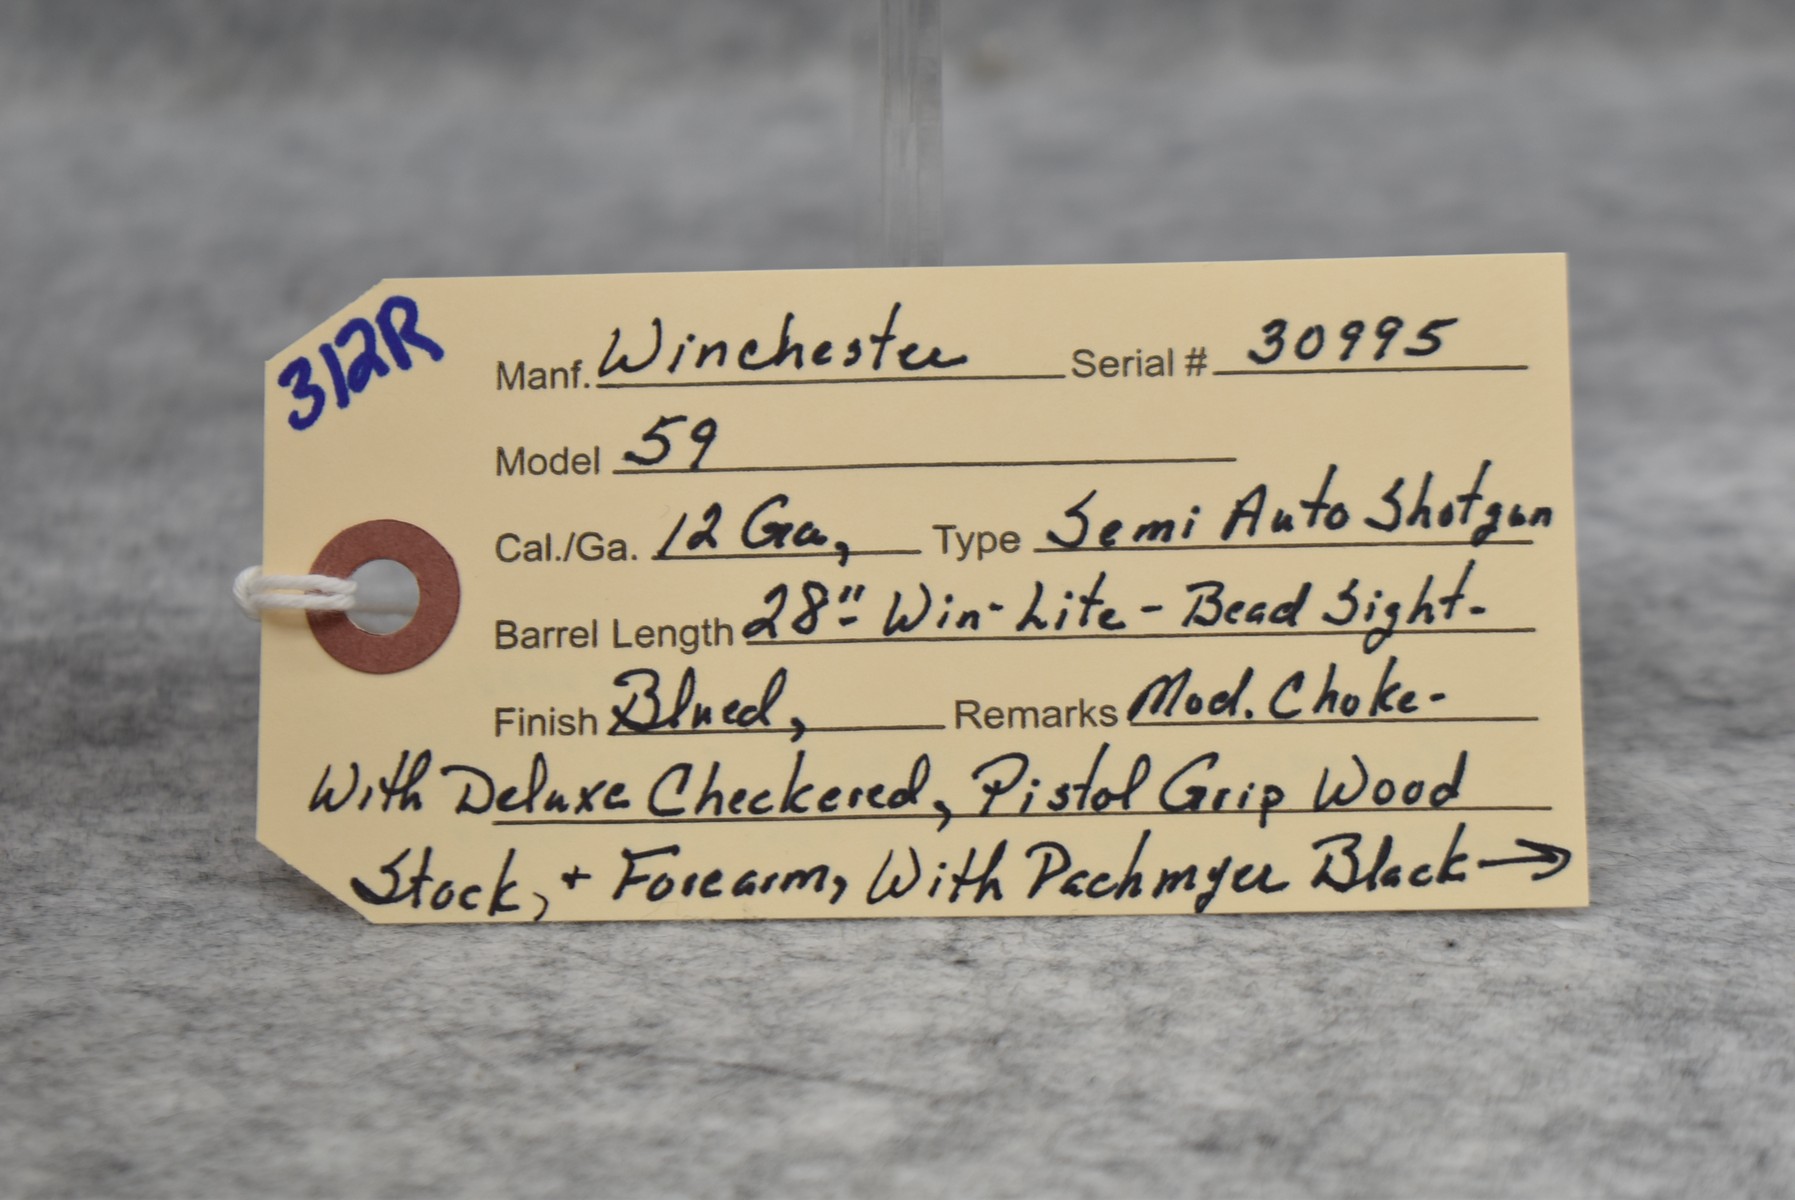 312R
Manf. Winchester Serial # 30995
Model 59
Cal./Ga. 12 Ga, Type Semi Auto Shotgun
Barrel Length 28" Win-Lite - Bead Sight-
Finish Blued, Remarks Mod. Choke-
With Deluxe Checkered, Pistol Grip Wood
Stock, + Forearm, With Pachmyer Black →